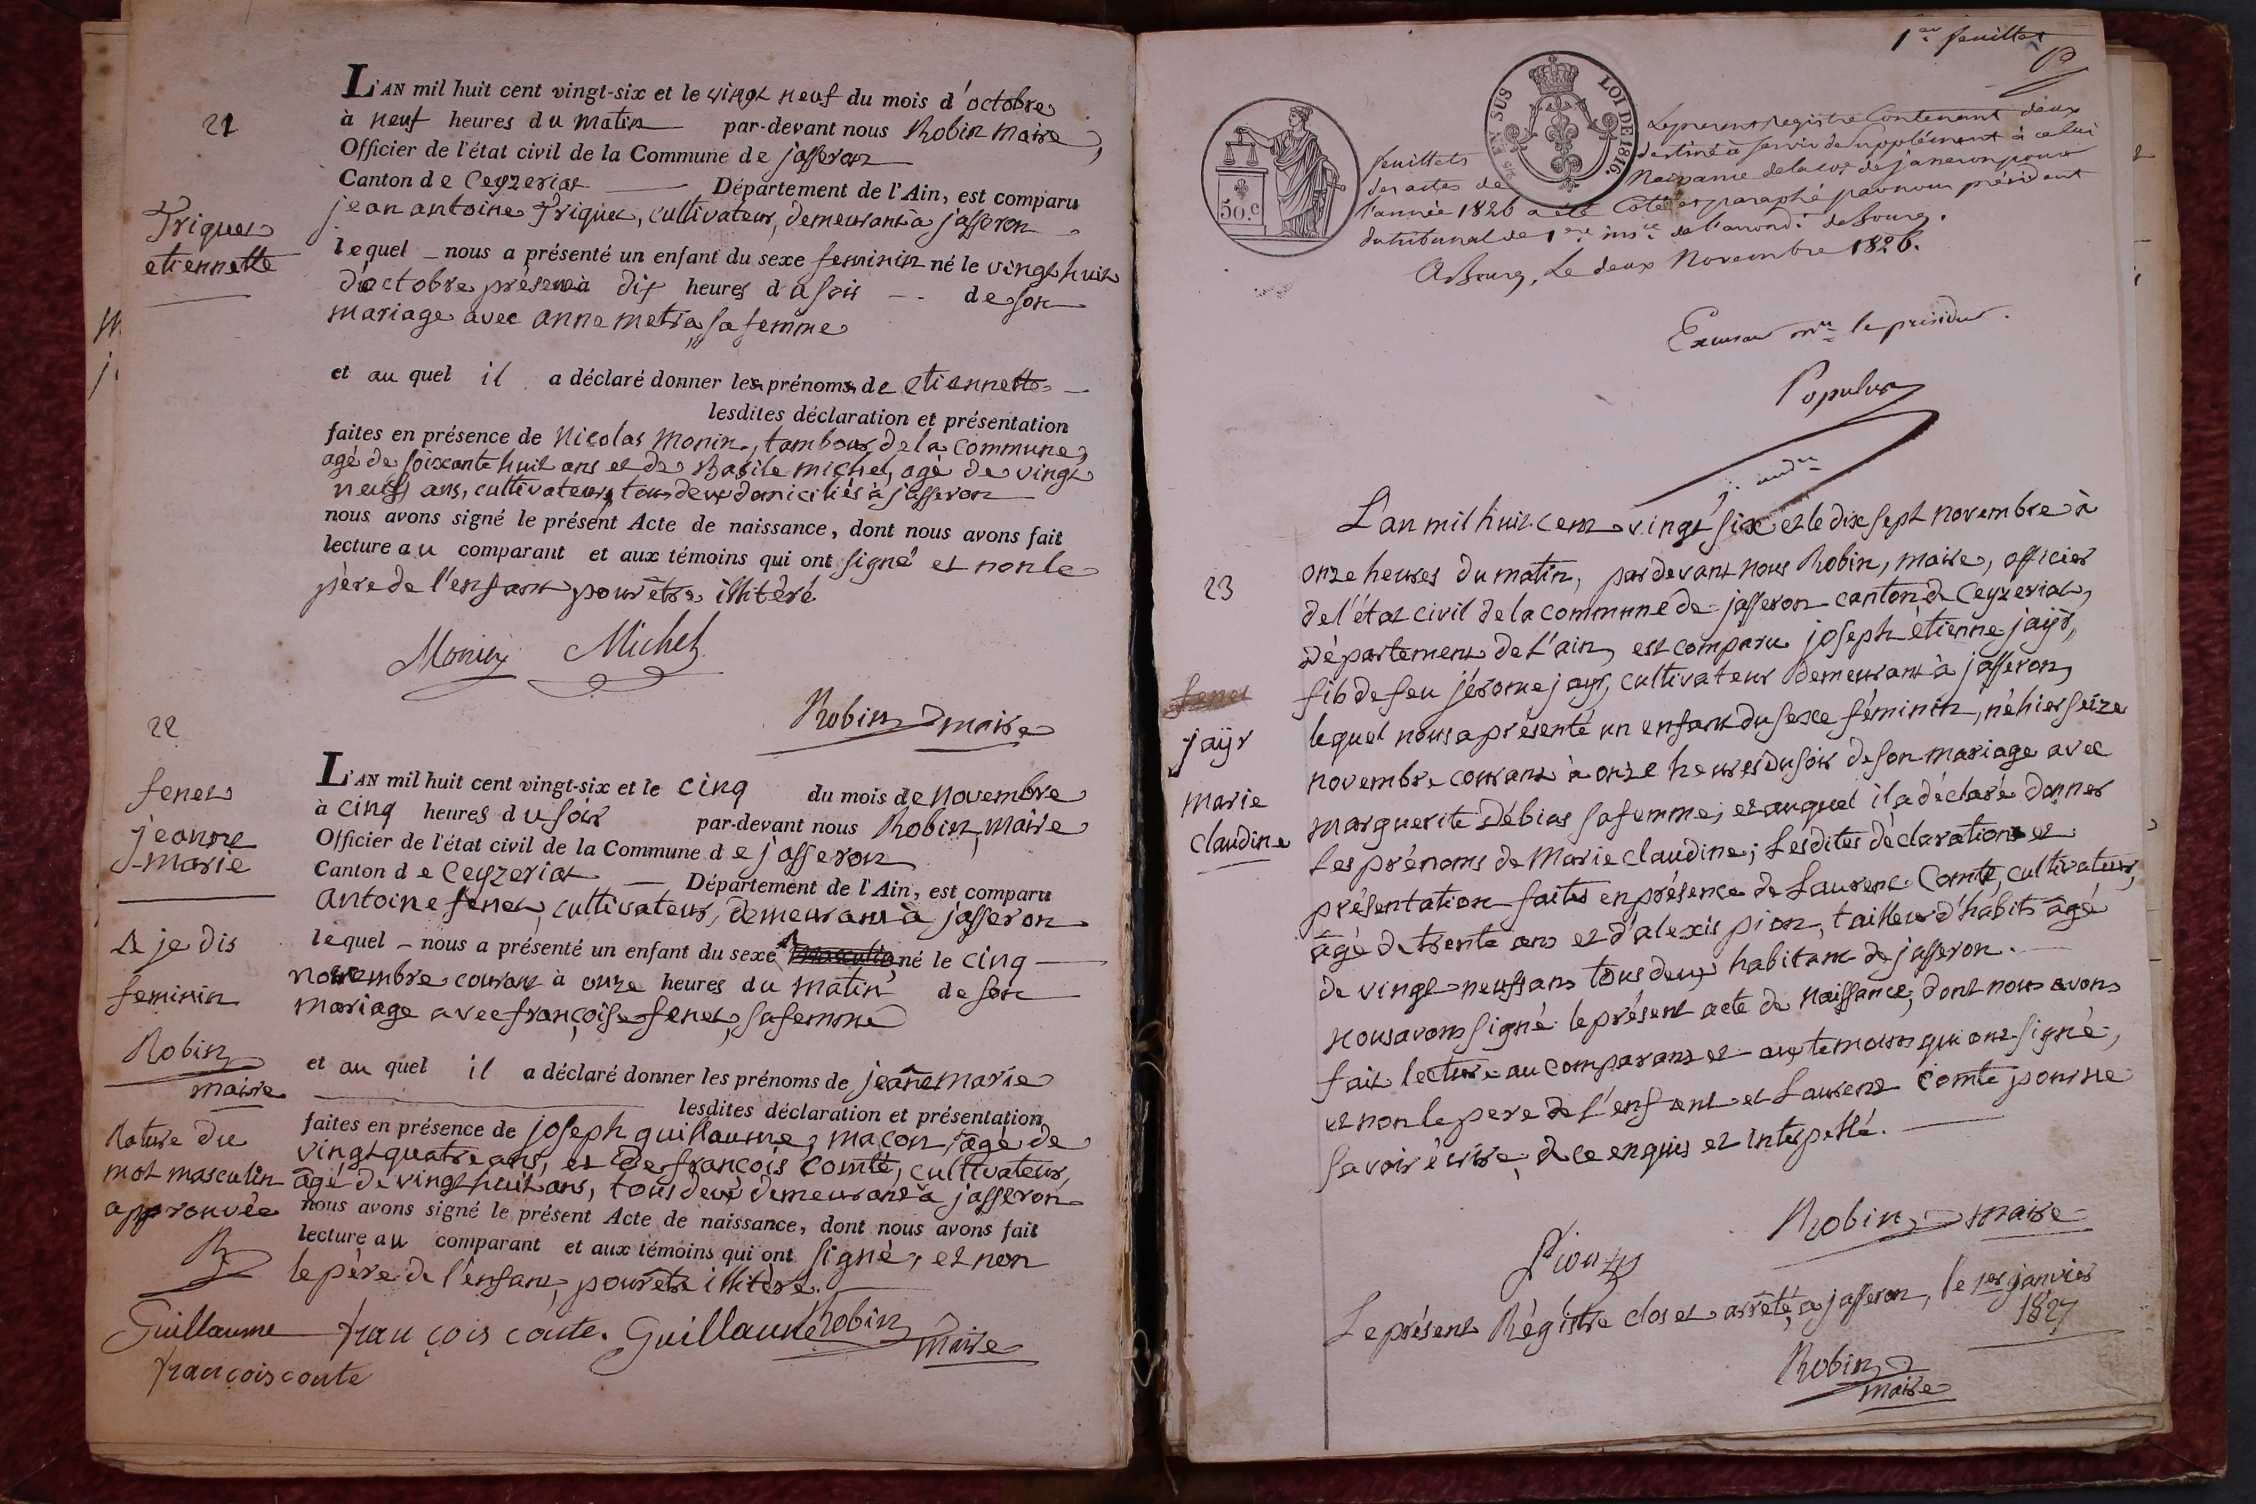 21
Triquet
etiennette
L'AN mil huit cent vingt-six et le vingt neuf du mois d'octobre
à neuf heures du matin par-devant nous Robin maire,
Officier de l'état civil de la Commune de jasseron
Canton de Ceyzeriat Département de l'Ain, est comparu
jean antoine Triquet, cultivateur, demeurant à jasseron
lequel nous a présenté un enfant du sexe feminin né le vingt huit
d'octobre présent à dix heures du soir de son
mariage avec anne metra sa femme
et au quel il a déclaré donner les prénoms de etiennette
lesdites déclaration et présentation
faites en présence de Nicolas Monin, tambour de la commune,
agé de soixante huit ans et de Basile michel, agé de vingt
neuf ans, cultivateur, tous deux domiciliés à jasseron
nous avons signé le présent Acte de naissance, dont nous avons fait
lecture au comparant et aux témoins qui ont signé et non le
père de l'enfant pour être illitéré
Monin Michel
Robin maire
22
fenet
jeanne
marie
L'AN mil huit cent vingt-six et le cinq du mois de novembre
à cinq heures du soir par-devant nous Robin, maire
Officier de l'état civil de la Commune de jasseron
Canton de Ceyzeriat Département de l'Ain, est comparu
antoine fenet, cultivateur, demeurant à jasseron
lequel nous a présenté un enfant du sexe masculin né le cinq
novembre courant à onze heures du matin de son
mariage avec françoise fenet, sa femme
et au quel il a déclaré donner les prénoms de jeanne marie
lesdites déclaration et présentation
faites en présence de joseph guillaume, macon, âgé de
vingt quatre ans, et de françois comte, cultivateur,
âgé de vingt huit ans, tous deux demeurant à jasseron
nous avons signé le présent Acte de naissance, dont nous avons fait
lecture au comparant et aux témoins qui ont signé, et non
le père de l'enfant, pour être illitéré.
je dis
feminin
Robin
maire
Rature du
mot masculin
approuvée
R
Guillaume françois conte. Guillaume Robin
maire
françois conte
1er feuillet
50.c
5 c. EN SUS LOI DE 1816.
Le present registre Contenant deux
feuillets destiné à servir de Supplément à celui
des actes de Naissance de la ce de jasseron pour
l'année 1826 a été Coté et paraphé par nous président
du tribunal de 1ere insce de l'arrondt de Bourg.
A Bourg, Le deux Novembre 1826.
23
jaÿr
marie
claudine
L'an mil huit cent vingt six et le dix sept novembre à
onze heures du matin, par devant nous Robin, maire, officier
de l'état civil de la commune de jasseron canton de Ceyzeriat,
Département de l'ain, est comparu joseph etienne jaÿr,
fils de feu jérome jayr, cultivateur demeurant à jasseron,
lequel nous a présenté un enfant du sexe féminin, né hier seize
novembre courant à onze heures du soir de son mariage avec
marguerite Débias sa femme; et auquel il a déclaré donner
les prénoms de Marie claudine; Lesdites déclaration et
présentation faites en présence de Laurent Comte, cultivateur,
âgé de trente ans et d'alexis pion, tailleur d'habits âgé
de vingt neuf ans tous deux habitant de jasseron.
nous avons signé le présent acte de naissance, dont nous avons
fait lecture au comparant et aux temoins qui ont signé,
et non le pere de l'enfant et Laurent comte pour ne
savoir écrire, de ce enquis et interpellé.
Robin maire
Pion
Le présent Régistre clos et arrêté, a jasseron, le 1er janvier
1827
Robin
maire